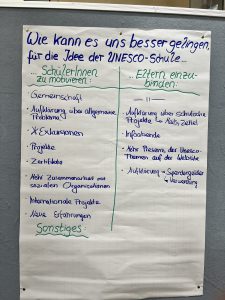 Wie kann es uns besser gelingen,
für die Idee der UNESCO-Schule...
SchülerInnen
zu motivieren:
- Gemeinschaft
- Aufklärung über allgemeine
Probleme
- Exkursionen
- Projekte
- Zertifikate
- Mehr Zusammenarbeit mit
sozialen Organisationen
- Internationale Projekte
- Neue Erfahrungen
Sonstiges:
Eltern einzu-
binden:
- " -
- Aufklärung über schulische
Projekte
- Infoabende
- Mehr Themen, der Unesco-
Themen auf der Website
- Aufklärung → Spendengelder
→ Verwendung